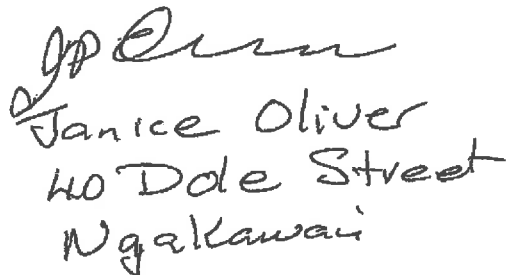 Janice Oliver
40 Dole Street
Ngakawau